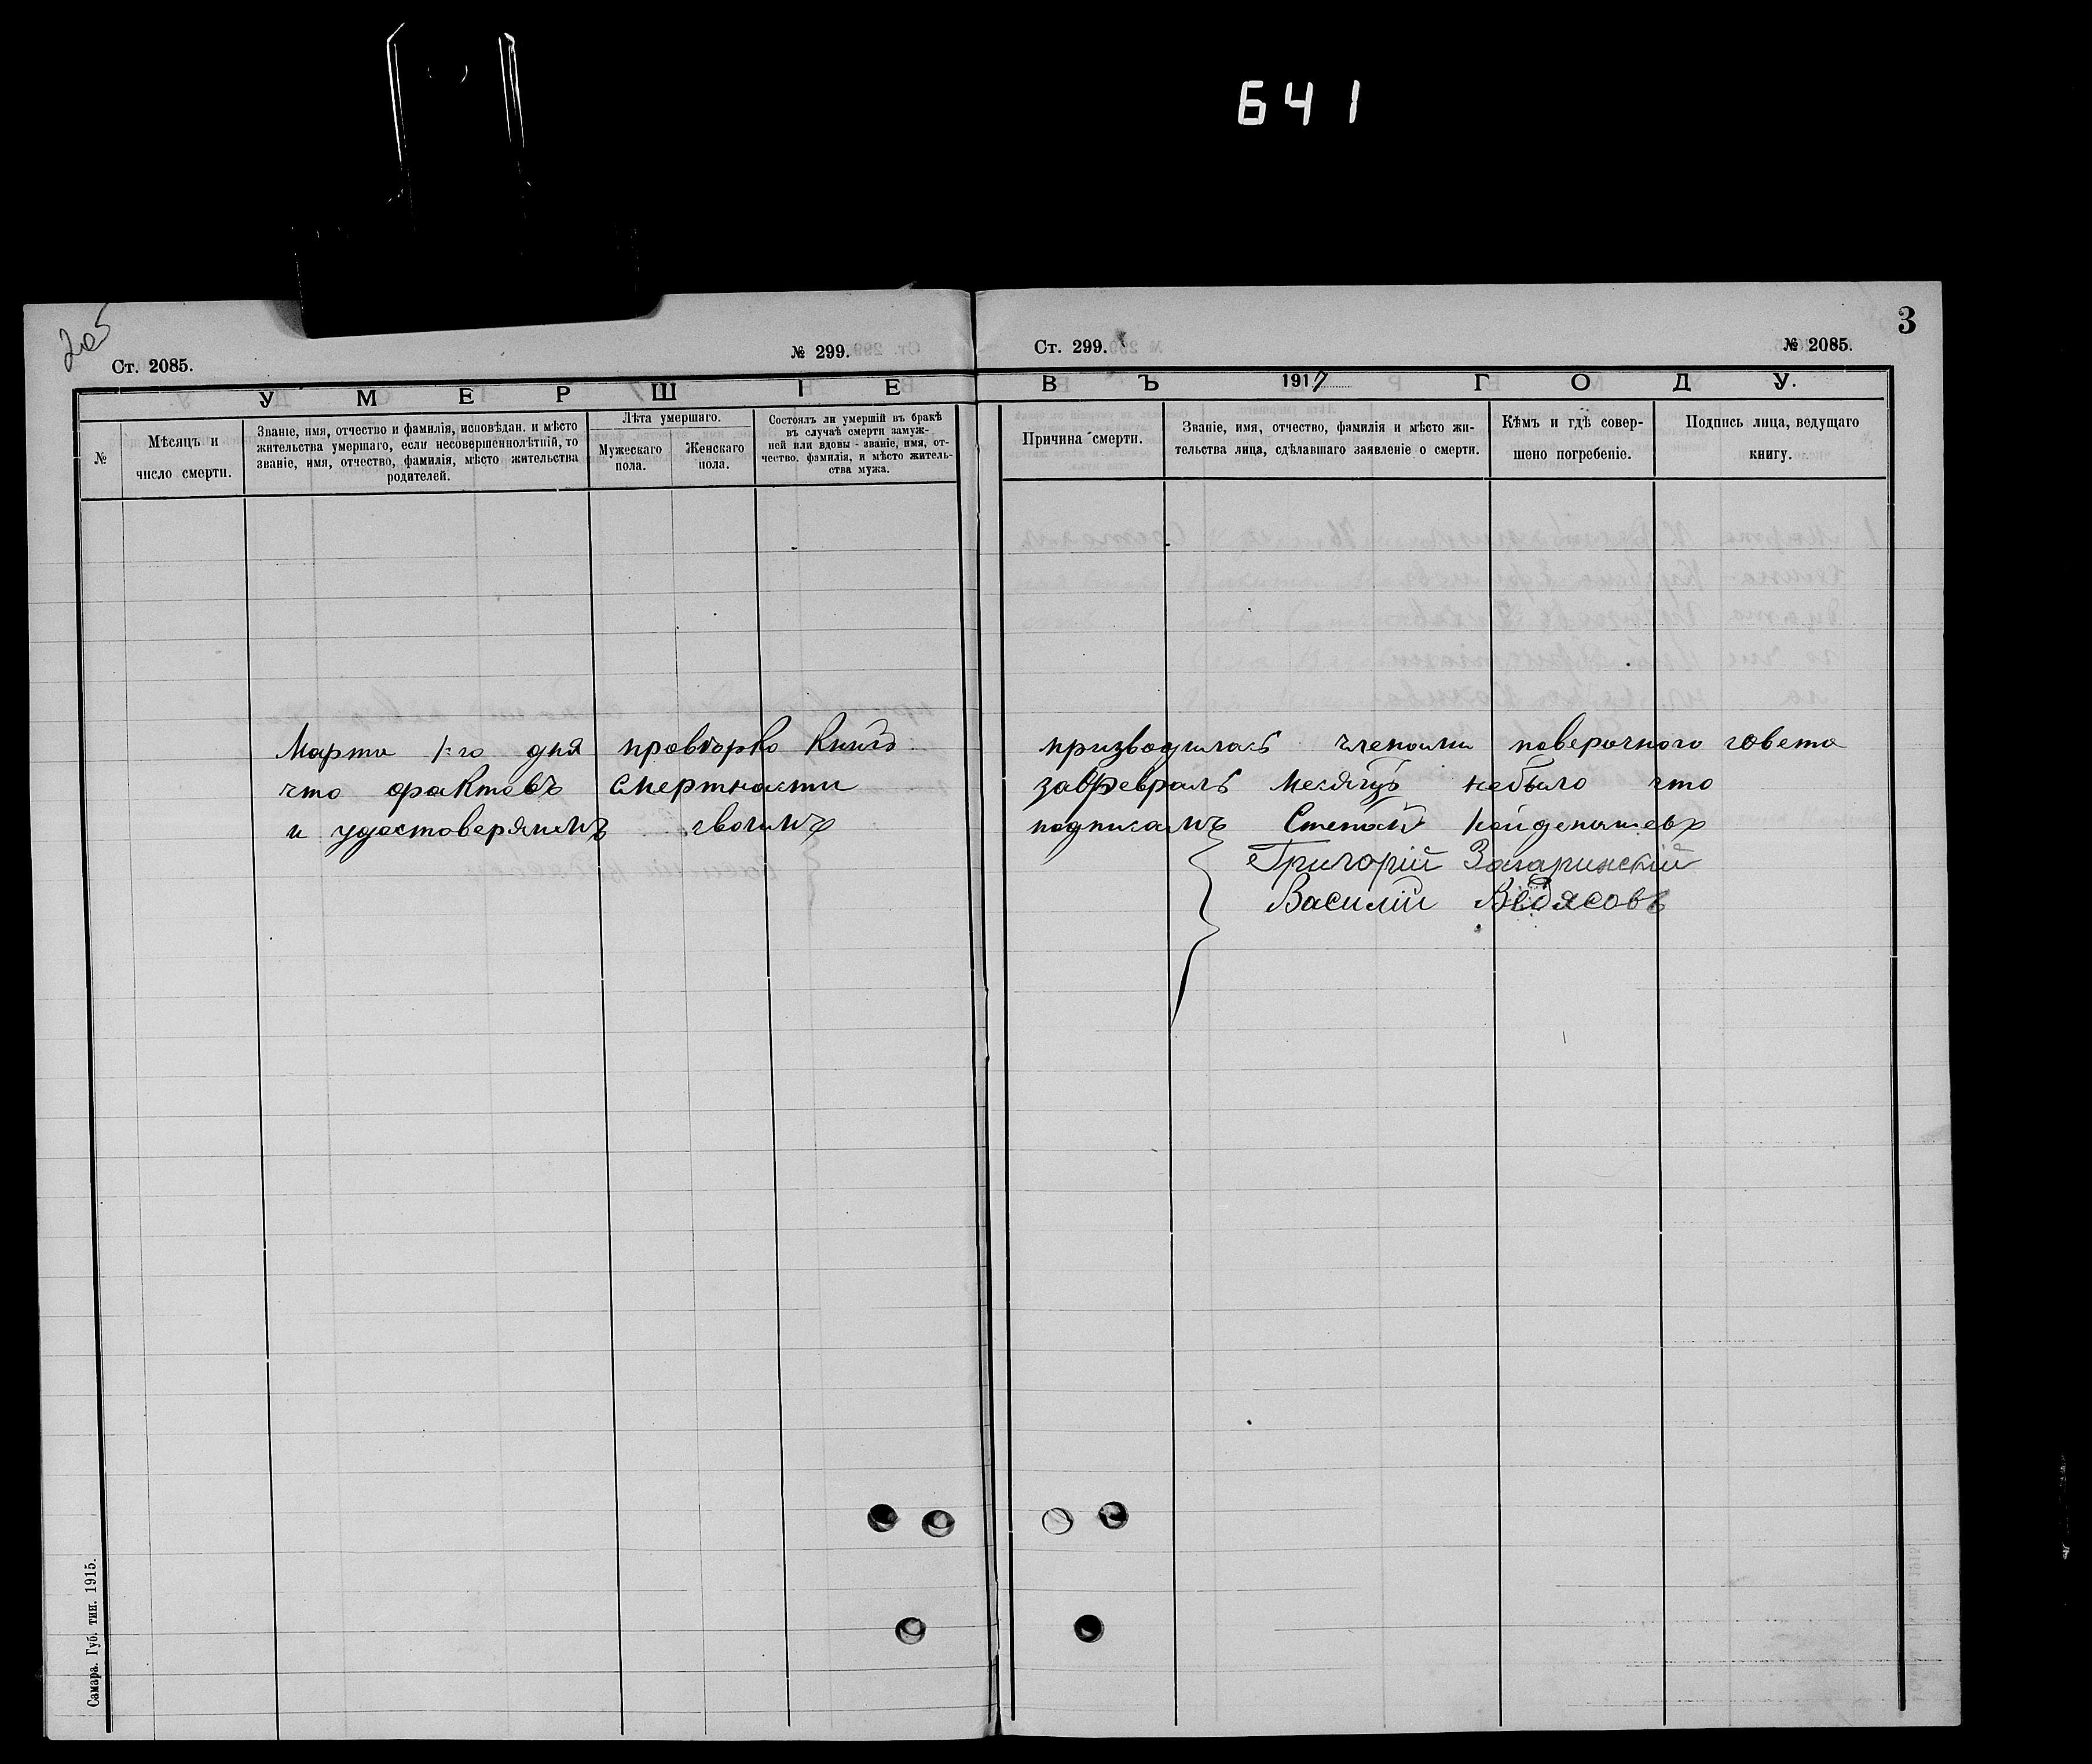 641
205
3
Ст. 2085.
№ 299.
Ст. 299.
№ 2085.
УМЕРШІЕ
ВЪ 1917 ГОДУ.
№
Мѣсяцъ и
число смерти.
Званіе, имя, отчество и фамилія, исповѣдан. и мѣсто
жительства умершаго, если несовершеннолѣтній, то
званіе, имя, отчество, фамилія, мѣсто жительства
родителей.
Лѣта умершаго.
Мужескаго
пола.
Женскаго
пола.
Состоялъ ли умершій въ бракѣ
въ случаѣ смерти замуж-
ней или вдовы - званіе, имя, от-
чество. фамилія, и мѣсто житель-
ства мужа.
Причина смерти.
Званіе, имя, отчество, фамилія и мѣсто жи-
тельства лица, сдѣлавшаго заявленіе о смерти.
Кѣмъ и гдѣ совер-
шено погребеніе.
Подпись лица, ведущаго
книгу.
Марта 1го дня провѣрка книгъ призводилась членами поверочного совета
что фактовъ смертности за февраль месяцъ небыло что
и удостоверяимъ своимъ подписамъ Степан
Григорій
Василій Ведясовъ
Самара. Губ. тип. 1915.